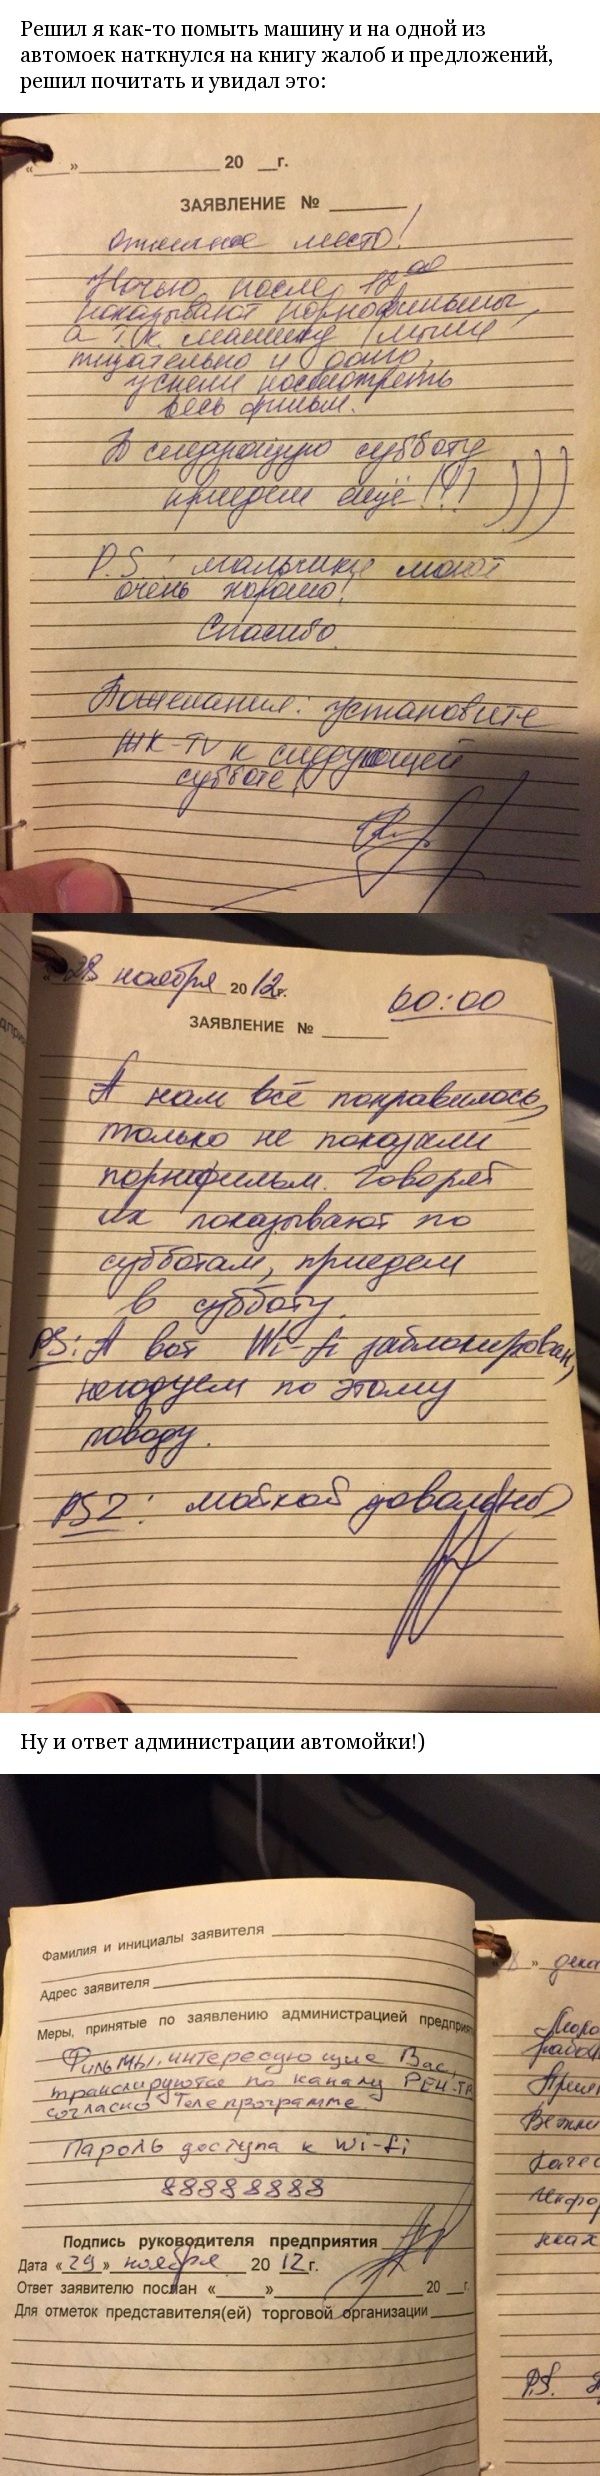 Решил я как-то помыть машину и на одной из
автомоек наткнулся на книгу жалоб и предложений,
решил почитать и увидал это:
«____» ____________ 20 __г.
ЗАЯВЛЕНИЕ № ________
Отличное место!
Ночью, после 18 00
показывают порнофильмы,
а т.к. машину мыли
тщательно и долго,
успели посмотреть
весь фильм.
В следующую субботу
приедем ещё!!! )))
P.S: мальчики моют
очень хорошо!
Спасибо.
Пожелания: установите
ЖК-TV к следующей
субботе!
28 ноября 2012г. 00:00
ЗАЯВЛЕНИЕ № ______
А нам всё понравилось,
только не показали
порнофильм. Говорят
их показывают по
субботам, приедем
в субботу.
PS: А вот Wi-fi заблокирован,
негодуем по этому
поводу.
PS2: мойкой довольны
Ну и ответ администрации автомойки!)
Фамилия и инициалы заявителя
Адрес заявителя
Меры, принятые по заявлению администрацией предприят
Фильмы, интересующие Вас,
транслируются по каналу РЕН-ТВ
согласно Телепрограмме.
Пароль доступа к wi-fi
88888888
Подпись руководителя предприятия
Дата «29» ноября 2012г.
Ответ заявителю послан «____» ____________ 20 __г.
Для отметок представителя(ей) торговой организации
дека
P.S.